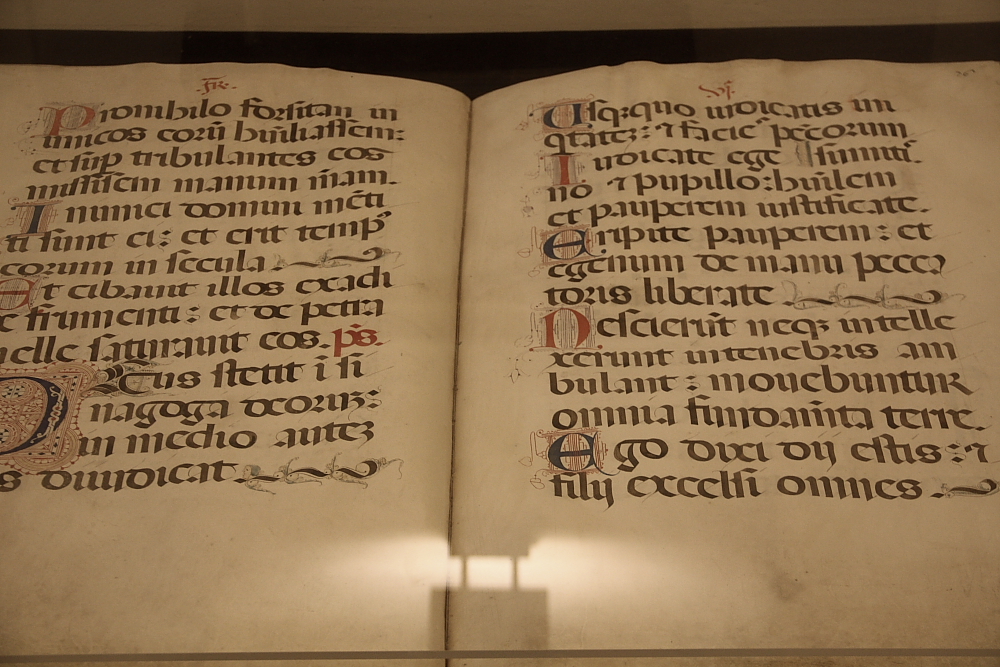 Fr.
Promhilo forsitan in
imicos corū hūiliassem:
et sup tribulantes eos
misissem manum m̄am.
Inimici domini mēti
ti sunt ei: et erit temp⁹
eorum in secula.
Et cibauit illos exadi
e frumenti: et de petra
melle saturauit eos. p̄s.
Deus stetit i si
nagoga deoruꝫ:
in medio auteꝫ
s diuidicat
vj.
Usqꝫquo iudicatis in
iqtateꝫ: ⁊ facie peccorum
Iudicate ege sumiti.
no ⁊ pupillo: hūilem
et pauperem iustificate.
Eripite pauperem: et
egenum de manu pecca
toris liberate
Nescierūt neqꝫ intelle
xerunt intenebris am
bulant: mouebuntur
omnia fundam̄ta terre.
Ego dixi dij estis: ⁊
filij excelsi omnes.